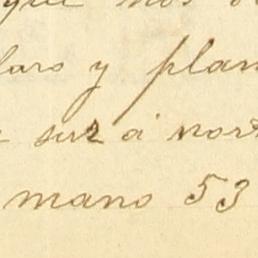 que nos
laro y plan
sur á nort
mano 53